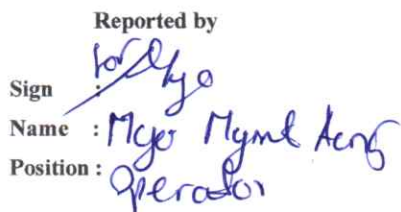 Reported by
Sign :
Name : Myo Myint Aung
Position : Operator